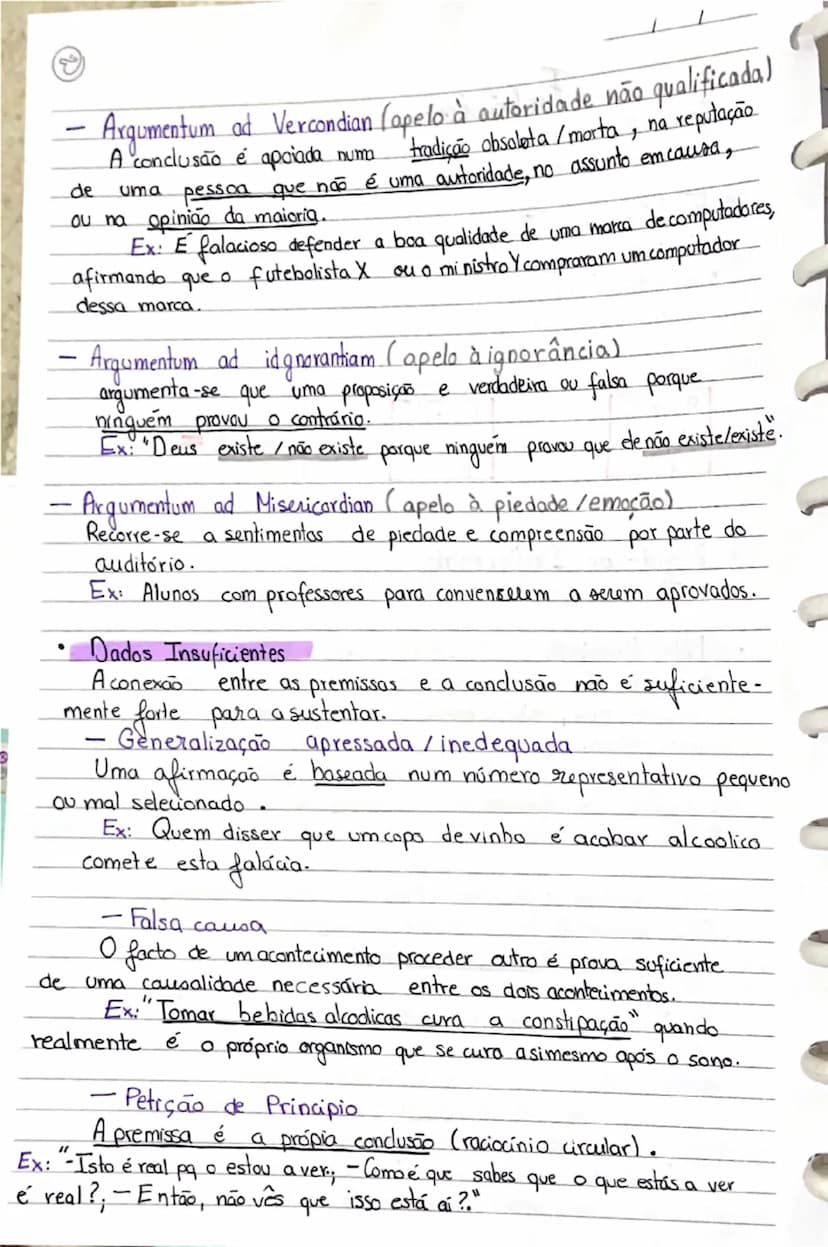 — Argumentum ad Vercondian (apelo à autoridade não qualificada)
A conclusão é apoiada numa tradição obsoleta / morta, na reputação
de uma pessoa que não é uma autoridade, no assunto em causa,
ou na opinião da maioria.
Ex: É falacioso defender a boa qualidade de uma marca de computadores,
afirmando que o futebolista X ou o ministro Y compraram um computador
dessa marca.
— Argumentum ad idgnorantiam (apelo à ignorância)
argumenta-se que uma proposição e verdadeira ou falsa porque
ninguém provou o contrário.
Ex: "Deus existe / não existe porque ninguém provou que ele não existe/existe".
— Argumentum ad Misericordian (apelo à piedade /emoção)
Recorre-se a sentimentos de piedade e compreensão por parte do
auditório.
Ex: Alunos com professores para convenserem a serem aprovados.
• Dados Insuficientes
A conexão entre as premissas e a conclusão não é suficiente-
mente forte para a sustentar.
— Generalização apressada / inedequada
Uma afirmação é baseada num número representativo pequeno
ou mal selecionado.
Ex: Quem disser que um copo de vinho é acabar alcoolico
comete esta falácia.
— Falsa causa
O facto de um acontecimento proceder outro é prova suficiente
de uma causalidade necessária entre os dois acontecimentos.
Ex: "Tomar bebidas alcoolicas cura a constipação" quando
realmente é o próprio organismo que se cura asimesmo após o sono.
— Petição de Principio
A premissa é a própia conclusão (raciocínio circular).
Ex: "-Isto é real pq o estou a ver; - Como é que sabes que o que estás a ver
é real?; - Então, não vês que isso está aí?"